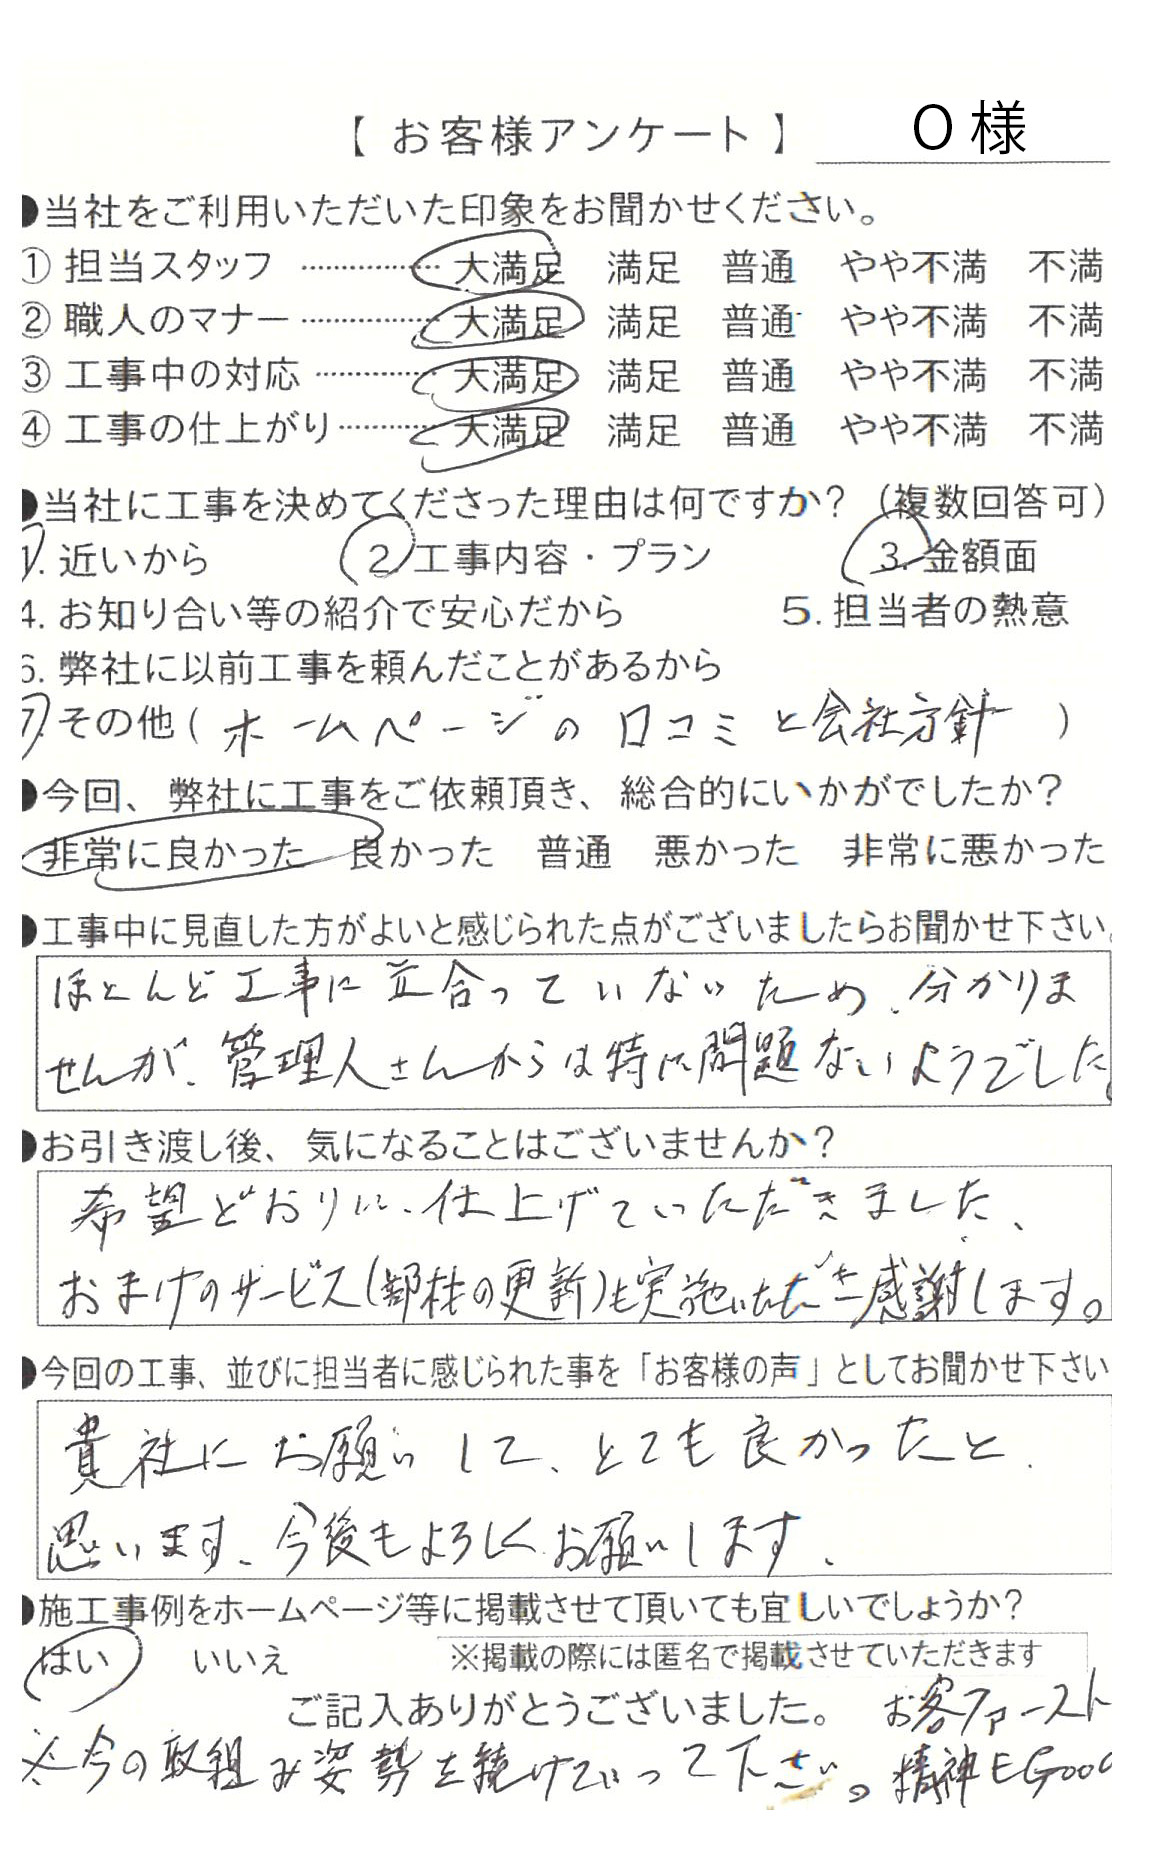 【 お客様アンケート 】 O 様
●当社をご利用いただいた印象をお聞かせください。
① 担当スタッフ ……………… 大満足 満足 普通 やや不満 不満
② 職人のマナー ……………… 大満足 満足 普通 やや不満 不満
③ 工事中の対応 ……………… 大満足 満足 普通 やや不満 不満
④ 工事の仕上がり ………… 大満足 満足 普通 やや不満 不満
●当社に工事を決めてくださった理由は何ですか？（複数回答可）
1. 近いから 2 工事内容・プラン 3. 金額面
4. お知り合い等の紹介で安心だから 5. 担当者の熱意
6. 弊社に以前工事を頼んだことがあるから
7 その他 ( ホームページの口コミと会社方針 )
●今回、弊社に工事をご依頼頂き、総合的にいかがでしたか？
非常に良かった 良かった 普通 悪かった 非常に悪かった
●工事中に見直した方がよいと感じられた点がございましたらお聞かせ下さい。
ほとんど工事に立合っていないため、分かりま
せんが、管理人さんからは特に問題ないようでした。
●お引き渡し後、気になることはございませんか？
希望どおりに、仕上げていただきました、
おまけのサービス(部材の更新)も実施いただき感謝します。
●今回の工事、並びに担当者に感じられた事を「お客様の声」としてお聞かせ下さい
貴社にお願いして、とても良かったと
思います、今後もよろしくお願いします、
●施工事例をホームページ等に掲載させて頂いても宜しいでしょうか？
はい いいえ ※掲載の際には匿名で掲載させていただきます
ご記入ありがとうございました。 お客ファースト
※今の取組み姿勢を続けていって下さい。 精神もGood